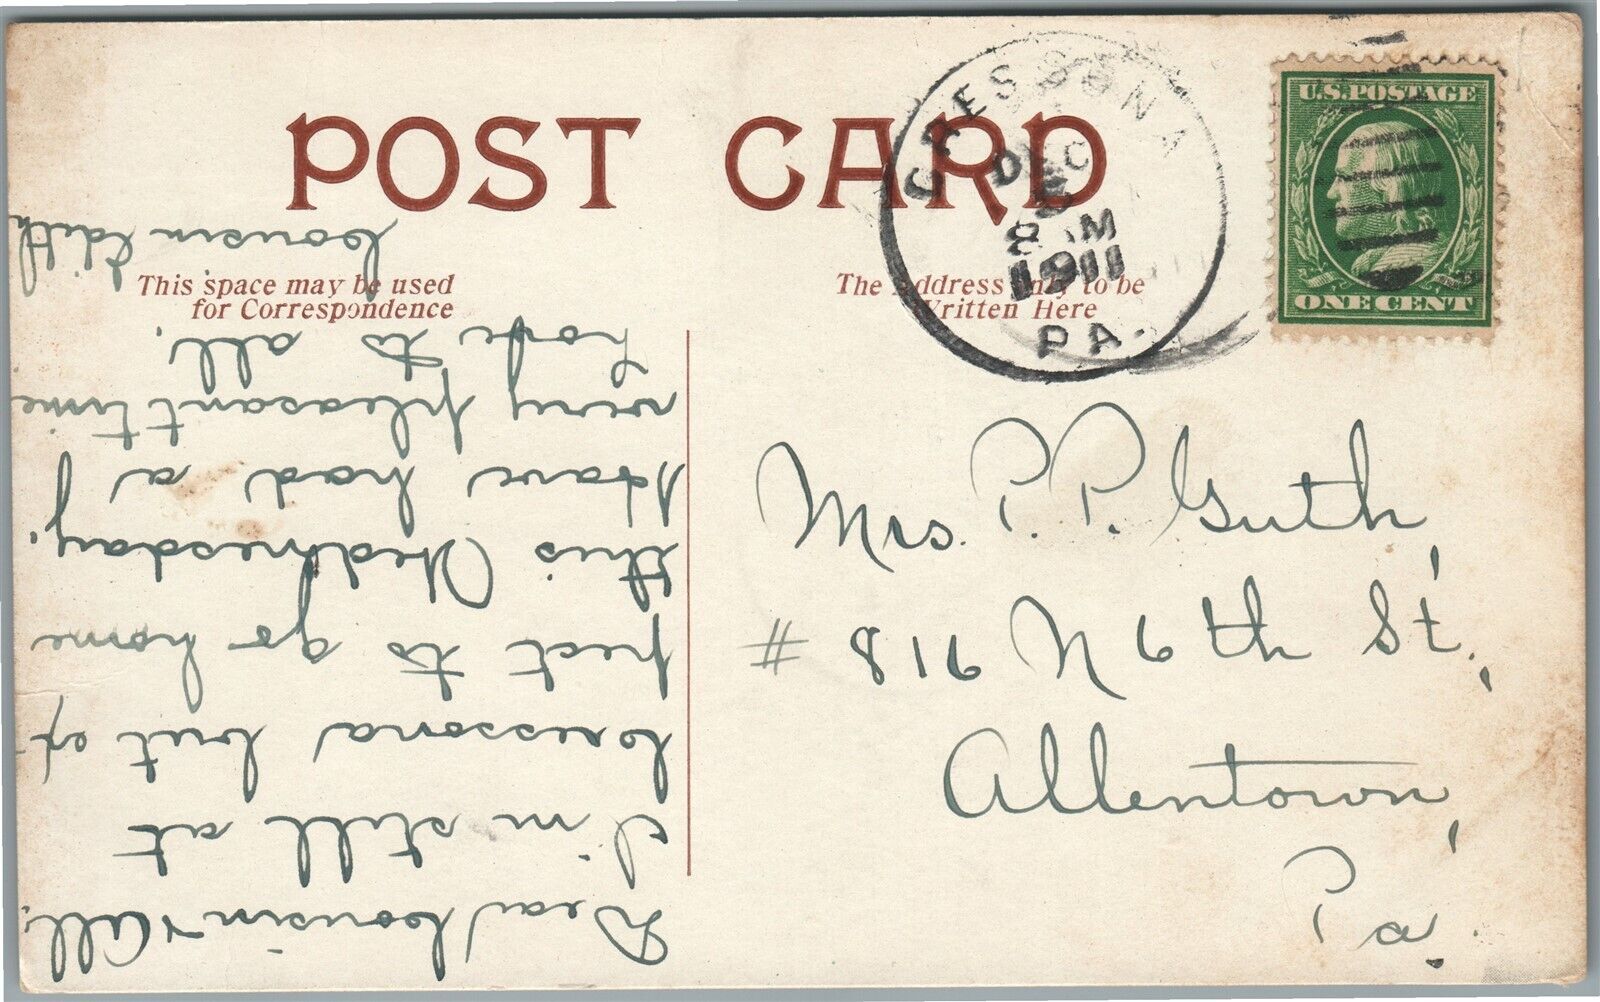 POST CARD
CRESSONA
DEC
5
8 AM
1911
PA.
U.S. POSTAGE
ONE CENT
This space may be used
for Correspondence
The Address only to be
Written Here
Mrs. P. P. Guth,
# 816 N 6th St.,
Allentown,
Pa.
Dear Cousin & All,
I'm still at
Cressona but ex-
pect to go home
this Wednesday.
Have had a
very pleasant time
hope to all.
Cousin Edith